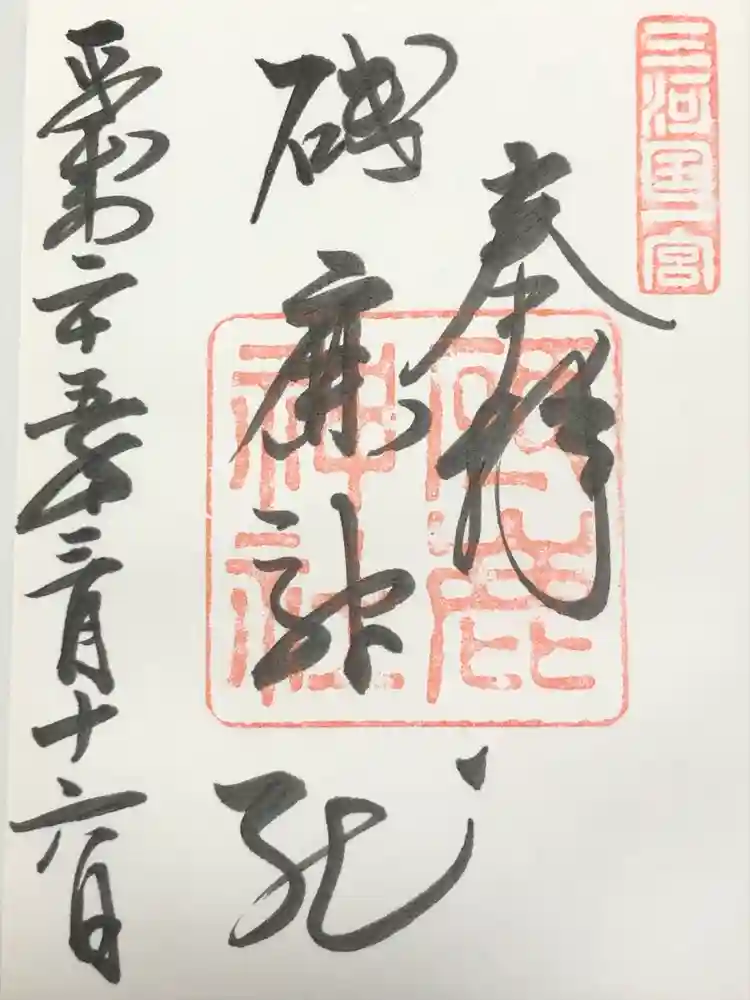 三河国一宮
奉拝
砥鹿神社
砥鹿神社
平成二十五年三月十六日